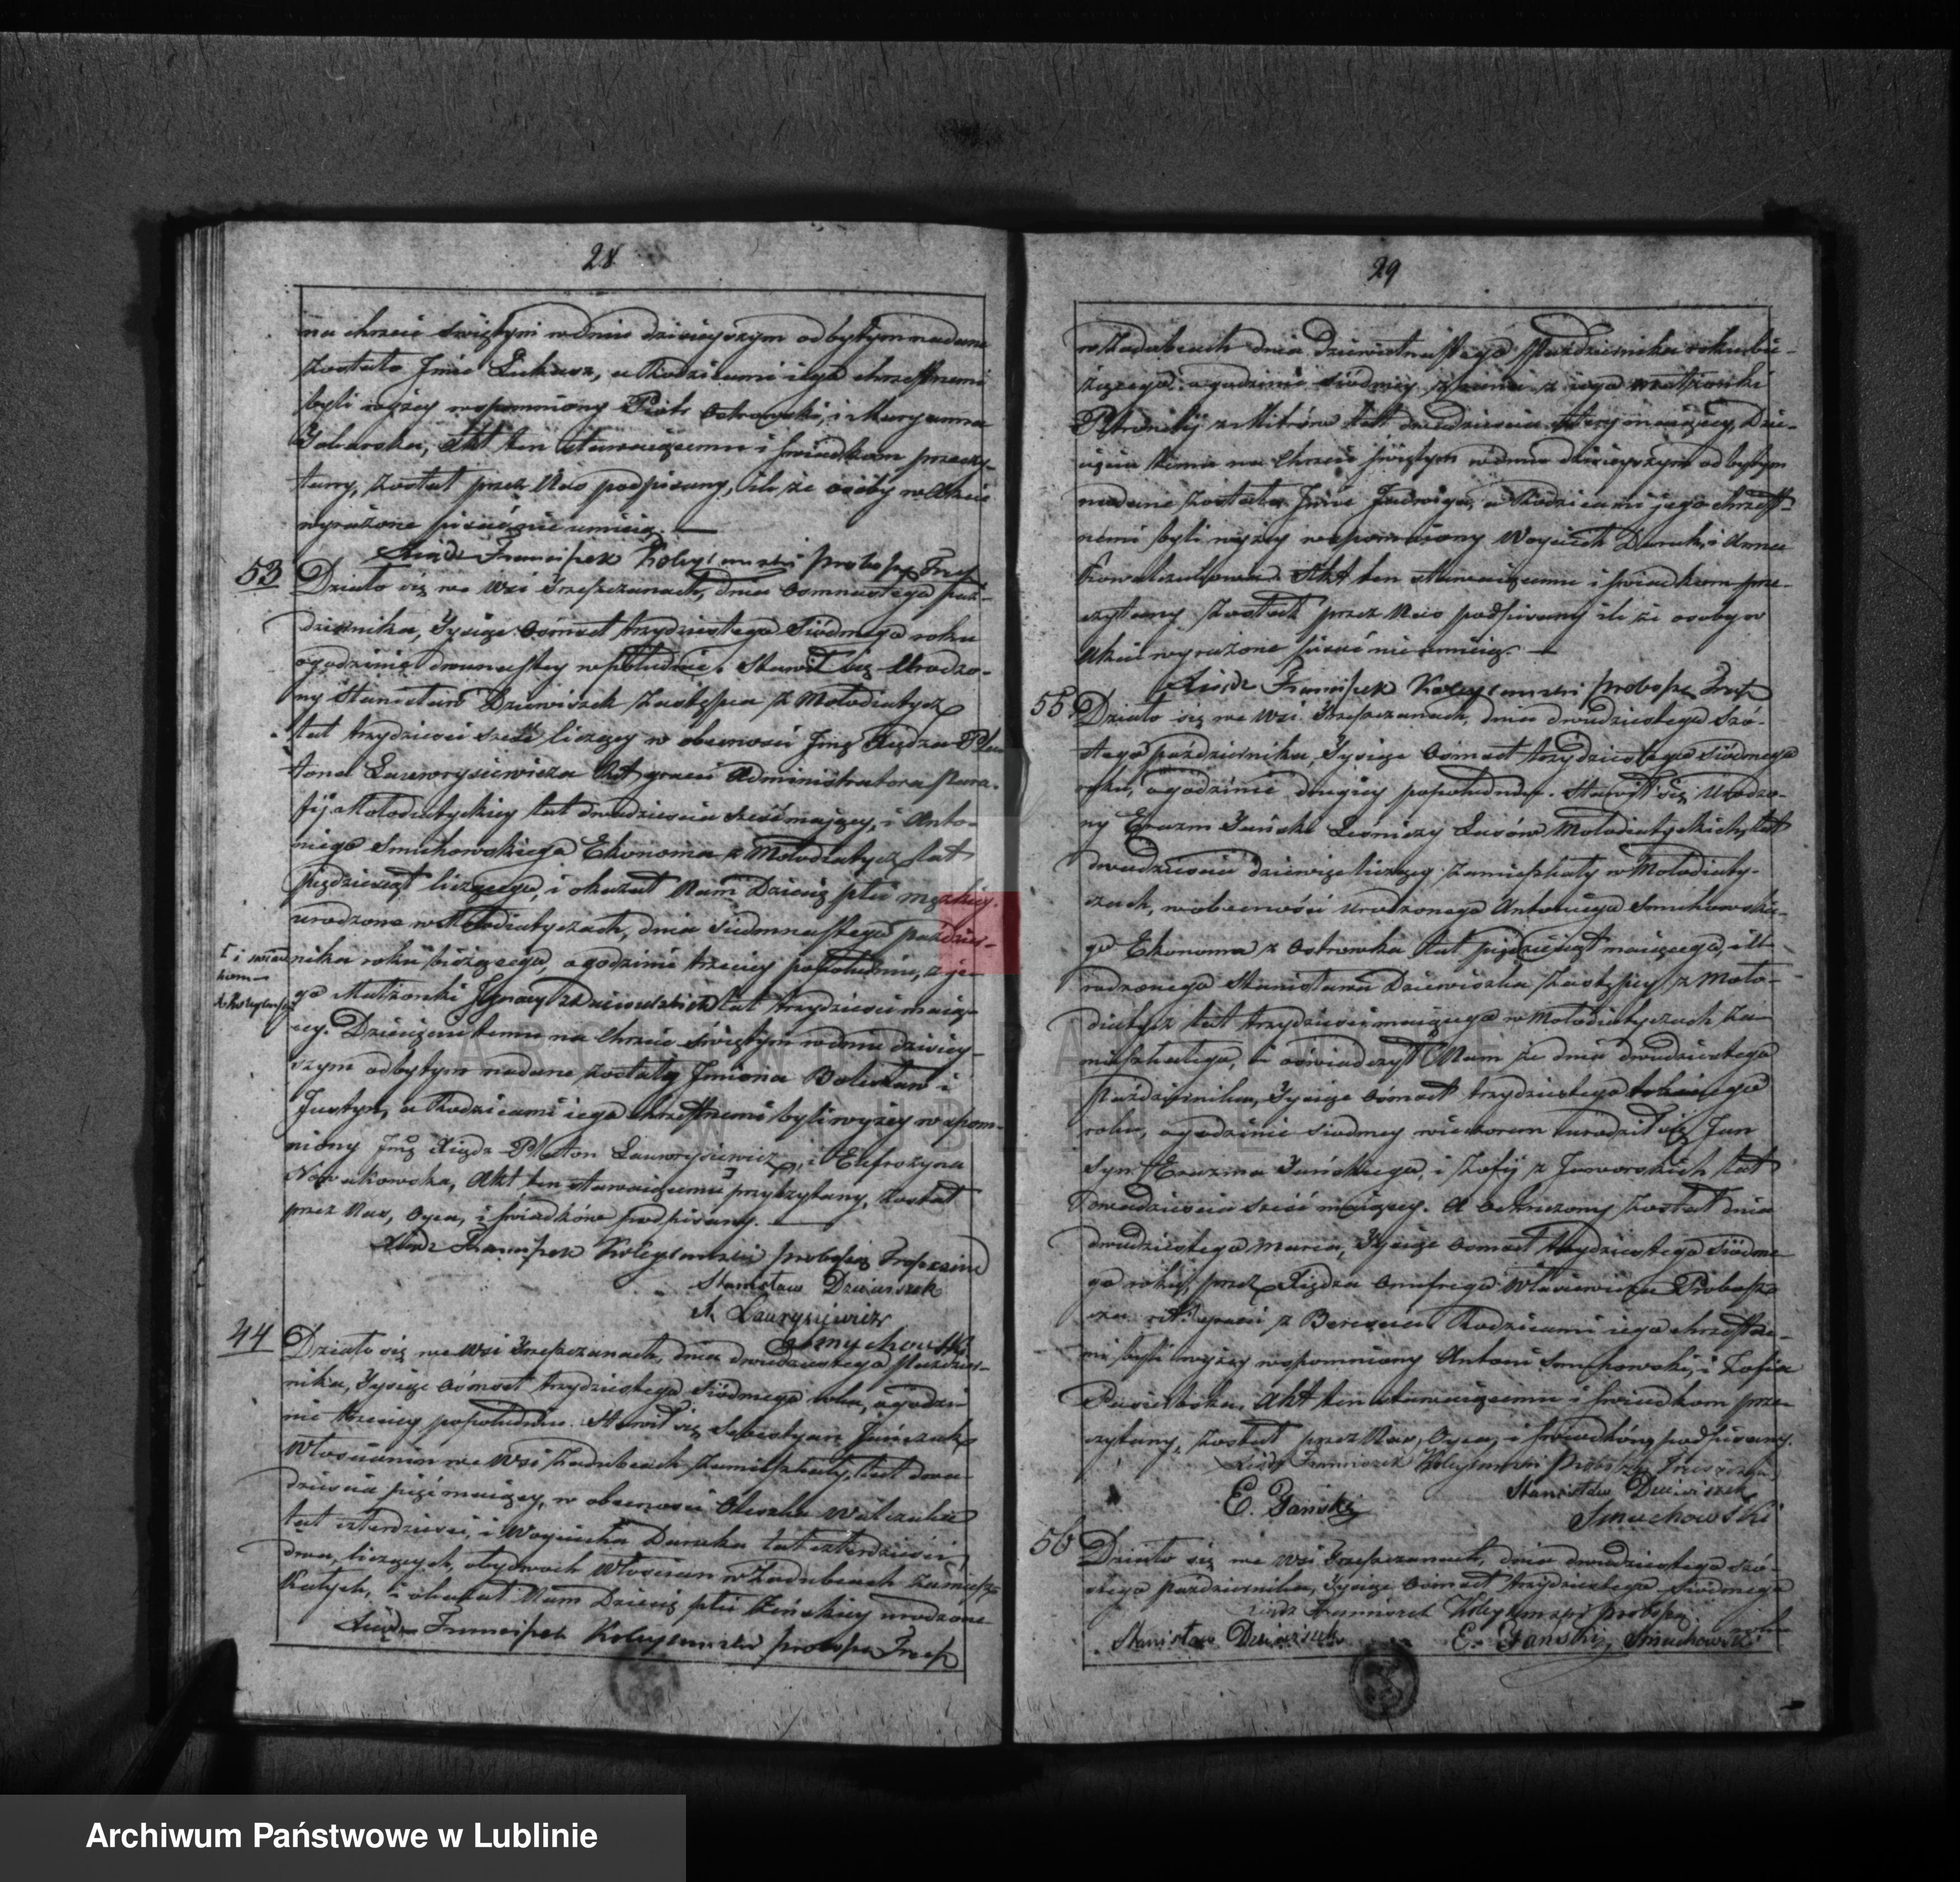 28
na chrzcie świętym w dniu dzisiejszym odbytym nadane
zostało Jmie Łukasz, a Rodzicami iego chrzestnemi
byli wyżey wspomniony Piotr Ostrowski, i Maryanna
Akt ten stawaiącemu i świadkom przeczy-
tany, został przez Nas podpisany, ile że osoby w Akcie
wyrażone pisać nie umieią.
Xiądz Franciszek proboszcz
53 Działo się we Wsi dnia osmnastego paź-
dziernika, Tysiąc ośmset trzydziestego siódmego roku
o godzinie dwunastey w południe. Stawił się Urodzo-
ny Stanisław Dziewiszek Zastępca z Mołodiatycz
lat trzydzieści sześć liczący w obecności Jmę Xiędza Pla
tona Ławrysiewicza Rit graeci Administratora Para-
fij Mołodiatyckiey lat dwadzieścia sześć maiący, i Anto-
niego Smuhowskiego Ekonoma z Mołodiatycz lat
pięćdziesiąt liczącego, i okazał Nam Dziecię płci męzkiey
urodzone w Mołodiatyczach, dnia siedmnastego paździer-
nika roku bieżącego, o godzinie trzeciey popołudniu, z je-
go Małżonki lat trzydzieści maią-
cey. Dziecięciu temu na Chrzcie świętym w dniu dzisiey-
szym odbytym nadane zostały Jmiona Bolesław i
Justyn, a Rodzicami iego chrzestnemi byli wyżey wspom-
niony Jmę Xiądz Platon Ławrysiewicz, i Eufrozyna
Nowakowska, Akt ten stawaiącemu przeczytany, został
przez Nas, Oyca, i świadków podpisany.
Xiądz Franciszek proboszcz
Stanisław Dziewiszek
Ławrysiewicz
Smuchowski
44 Działo się we Wsi dnia dwudziestego paździer-
nika, Tysiąc ośmset trzydziestego siódmego roku, o godzi-
nie trzeciey popołudniu. Stawił się Sebestyan Jańczuk
Włościanin we Wsi Zadubcach zamieszkały, lat dwa-
dzieścia pięć maiący, w obecności Oleszka Walczuka
lat czterdzieści, i Woyciecha Daruka lat czterdzieści
dwa, liczących, obydwóch Włościan w Zadubcach zamiesz-
kałych, i okazał Nam Dziecię płci żeńskiey urodzone
Xiądz Franciszek proboszcz
29
w Zadubcach dnia dziewiętnastego Października roku bie-
żącego o godzinie siódmey z rana z iego małżonki
lat dwadzieścia maiącey, Dzie-
cięciu temu na Chrzcie świętym w dniu dzisieyszym odbytym
nadane zostało Jmie Jadwiga, a Rodzicami jego chrzest-
nemi byli wyżey wspomniony Woyciech Daruk, i Anna
Kowalczukowa. Akt ten stawaiącemu i świadkom prze-
czytany został przez Nas podpisany ile że osoby w
Akcie wyrażone pisać nie umieią.
Xiądz Franciszek proboszcz
55 Działo się we Wsi dnia dwudziestego szó-
stego października, Tysiąc ośmset trzydziestego siódmego
roku, o godzinie drugiey popołudniu. Stawił się Urodzo-
ny Erazm Jański Leśniczy Lasów Mołodiatyckich, lat
dwadzieścia dziewięć liczący zamieszkały w Mołodiaty-
czach, w obecności Urodzonego Antoniego Smuhowskie-
go Ekonoma z Ostrowka lat pięćdziesiąt maiącego, i U-
rodzonego Stanisława Dziewiszka Zastępcy z Moło-
diatycz lat trzydzieści maiącego w Mołodiatyczach za-
mieszkałego, i oświadczył Nam że dnia dwudziestego
Października, Tysiąc ośmset trzydziestego
roku, o godzinie siódmey wieczorem urodził się Jan
Syn Erazma Jańskiego, i Zofij z Jaworskich lat
dwadzieścia sześć maiącey. A Ochrzczony został dnia
dwudziestego Marca, Tysiąc ośmset trzydziestego siódme
go roku, przez Xiędza Onufrego Własiewicza Probosz-
cza rit. graeci z Beresnia Rodzicami iego chrzestne-
mi byli wyżey wspomniony Antoni Smuhowski, i Zofia
Akt ten stawaiącemu i świadkom prze-
czytany, został przez Nas, Oyca, i świadków podpisany.
Xiądz Franciszek Proboszcz
E. Jański
Stanisław Dziewiszek
Smuchowski
56 Działo się we Wsi dnia dwudziestego szó-
stego października, Tysiąc ośmset trzydziestego siódmego
Xiądz Franciszek proboszcz
Stanisław Dziewiszek E. Jański, Smuchowski
ARCHIWUM PAŃSTWOWE
W LUBLINIE
Archiwum Państwowe w Lublinie